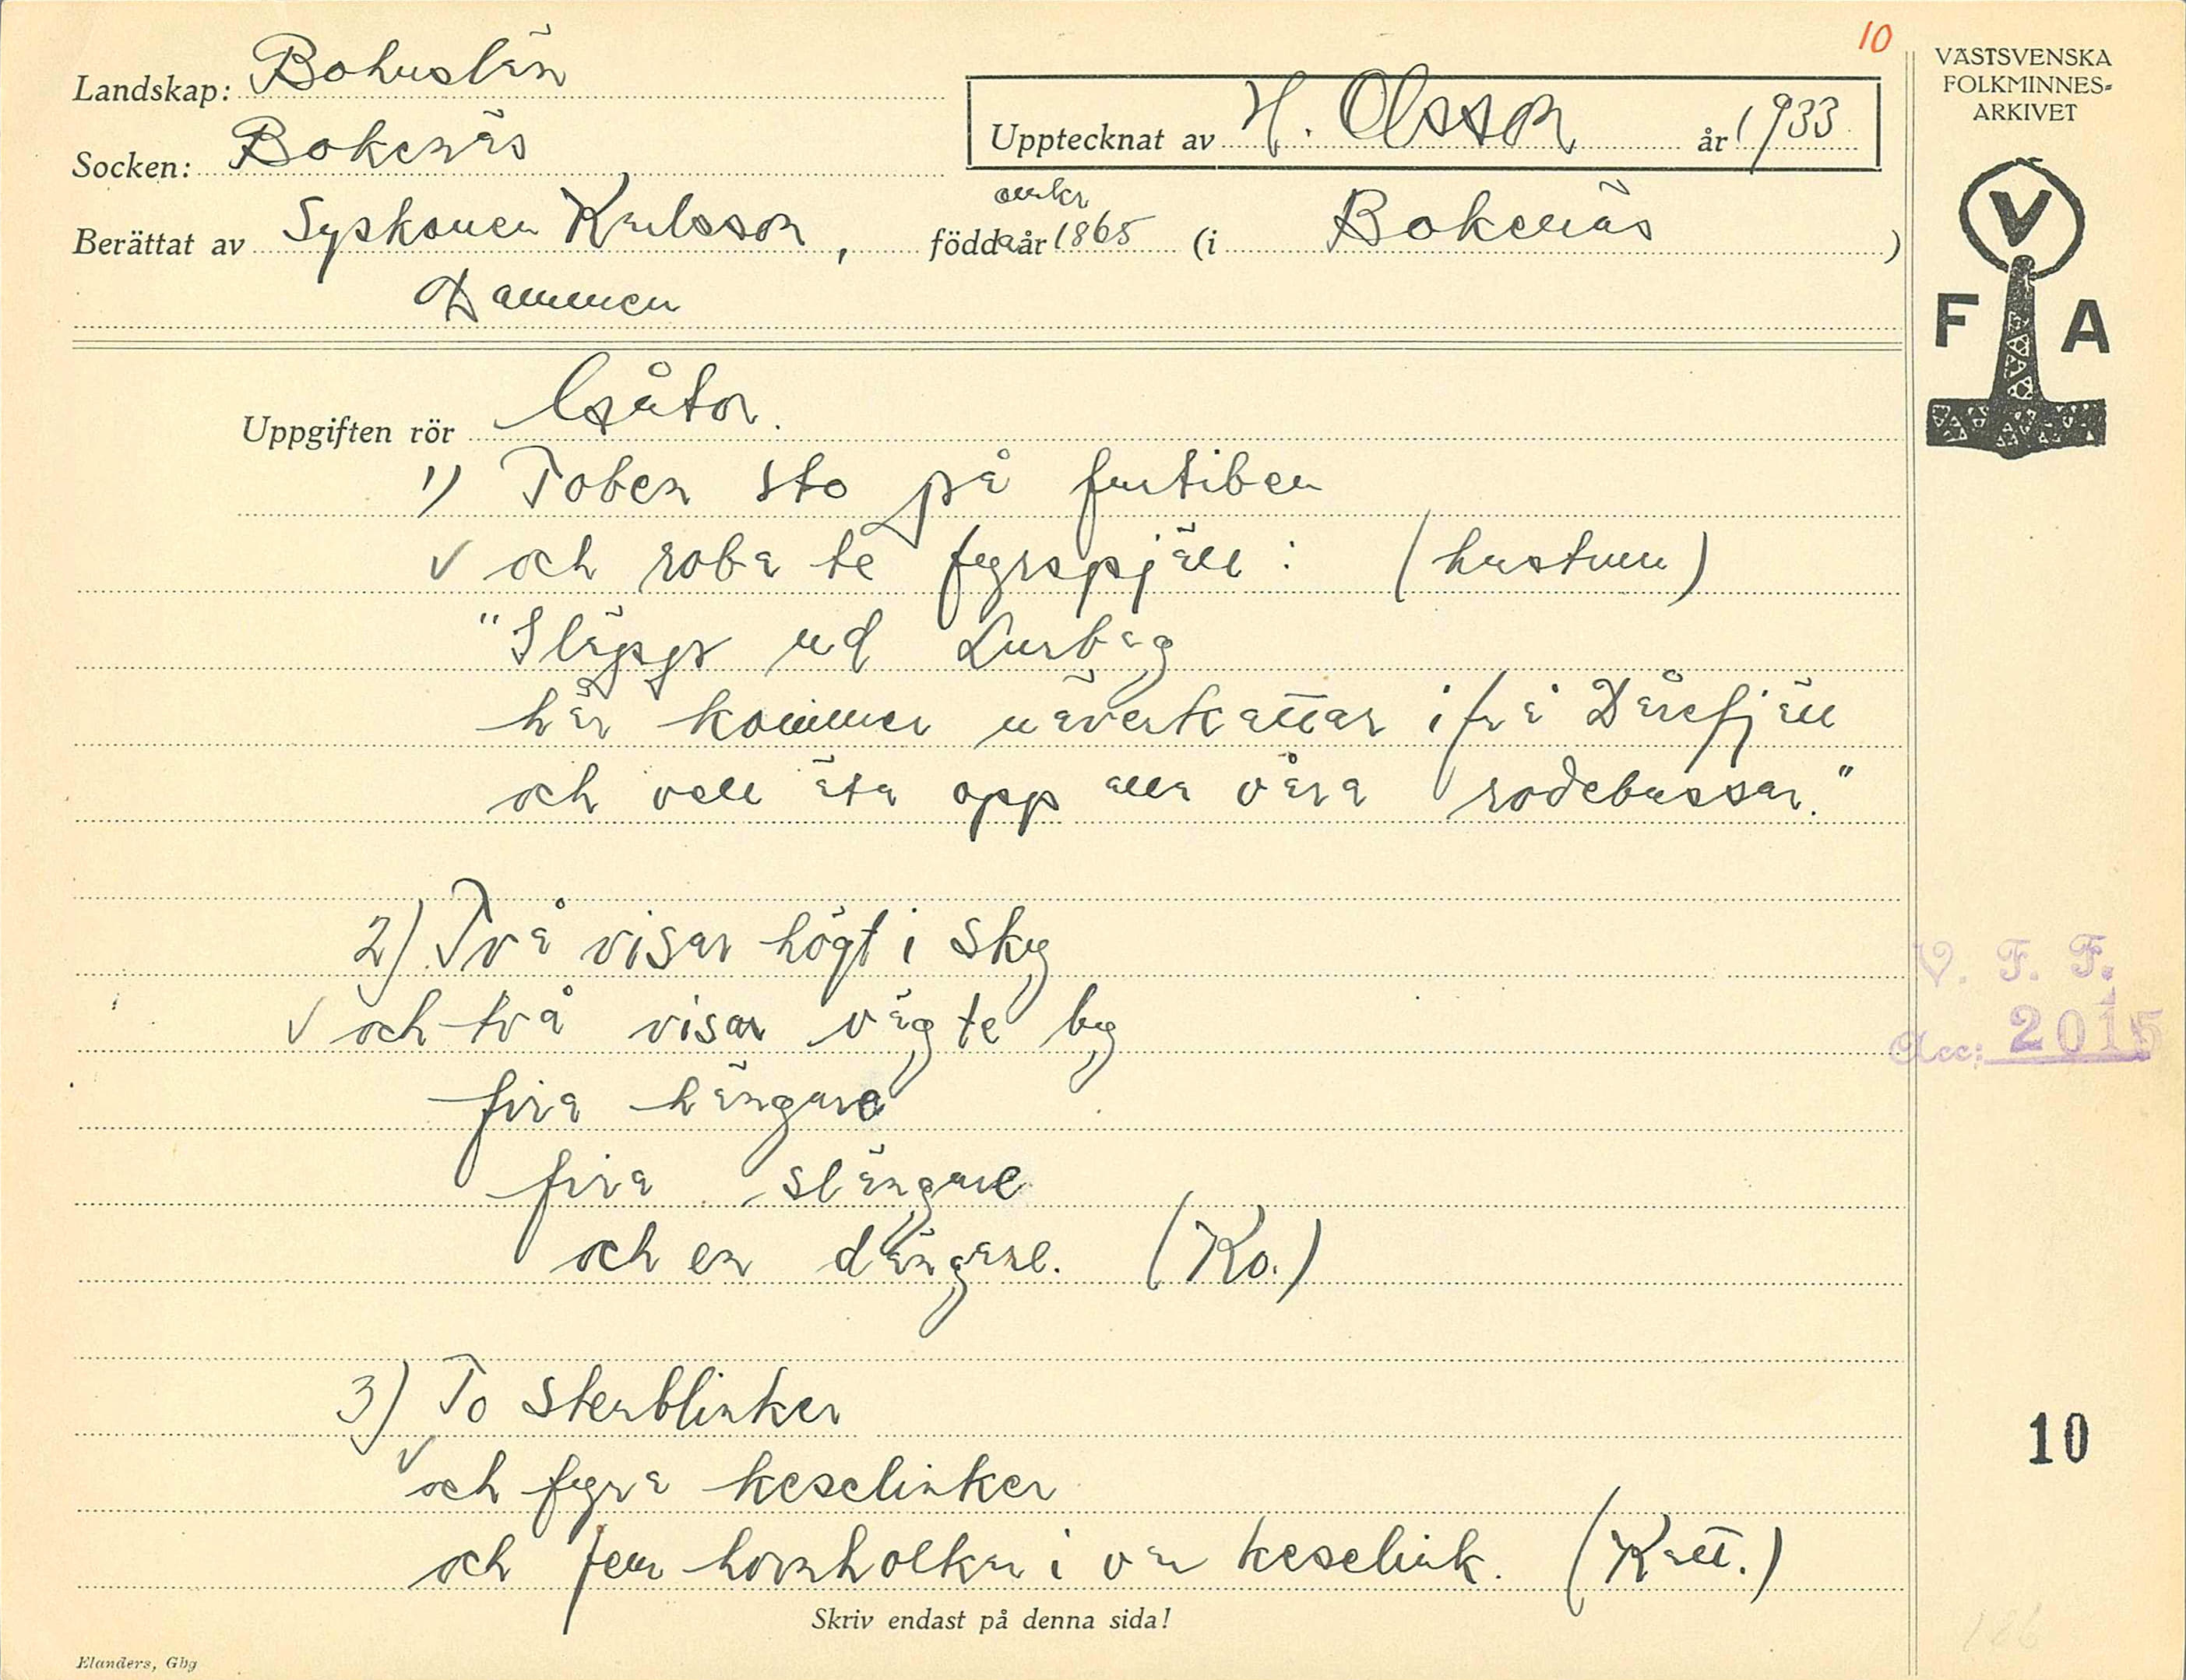 10
VÄSTSVENSKA
FOLKMINNES-
ARKIVET
Landskap: Bohuslän
Upptecknat av H. Olsson år 1933
Socken: Bokenäs
omkr
Berättat av Syskonen Karlsson, födda år 1865 (i Bokenäs)
Dammen
V
F A
Uppgiften rör Gåtor.
1) Toben sto på furtiben
och roba te fyrspjäll: (hustrun)
"Släpps ud Lurbag
här kommer näverkattar ifrå Dårefjäll
och vell äta opp alla våra rodebassar."
2) Två visar högt i sky
och två visar väg te by
fira hängare
fira slängare
och en dängare. (Ko.)
V. F. F.
Acc: 2015
3) To stenblinker
och fyra keselinker
och fem hornholkar i var keselink. (Katt.)
10
Skriv endast på denna sida!
Elanders, Gbg